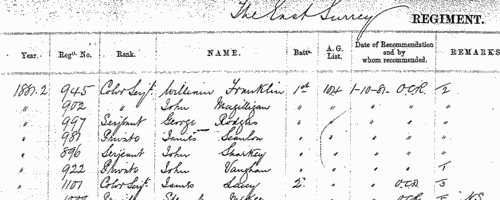 The East Surrey REGIMENT.
Year. Regtl. No. Rank. NAME. Battn. A. G. List. Date of Recommendation and by whom recommended. REMARKS
1881-2 945 Color Serjt. William Franklin 1st 104 1-10-81 O.C.R. 1/2
" 902 " John Magilligan " " " " "
" 997 Serjeant George Rodgers " " " " "
" 987 Private James Scanlon " " " "
" 896 Serjeant John Sharkey " " " "
" 922 Private John Vaughan " " " 1
" 1101 Color Serjt. James Lacey 2. " O.C.R.